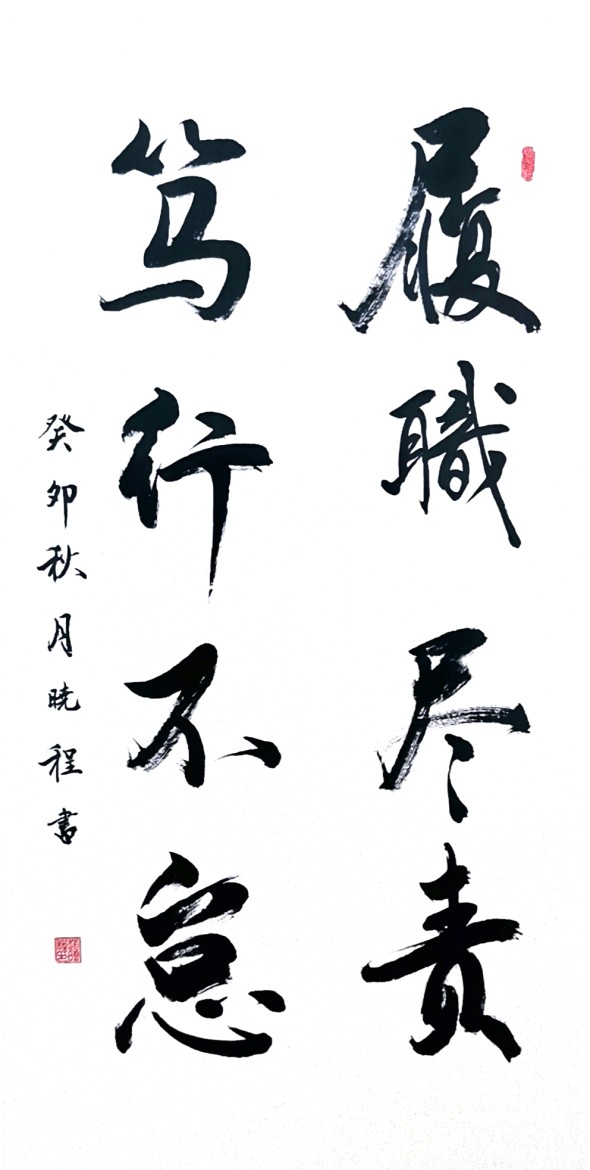 履職尽责
笃行不怠
癸卯秋月晓程書